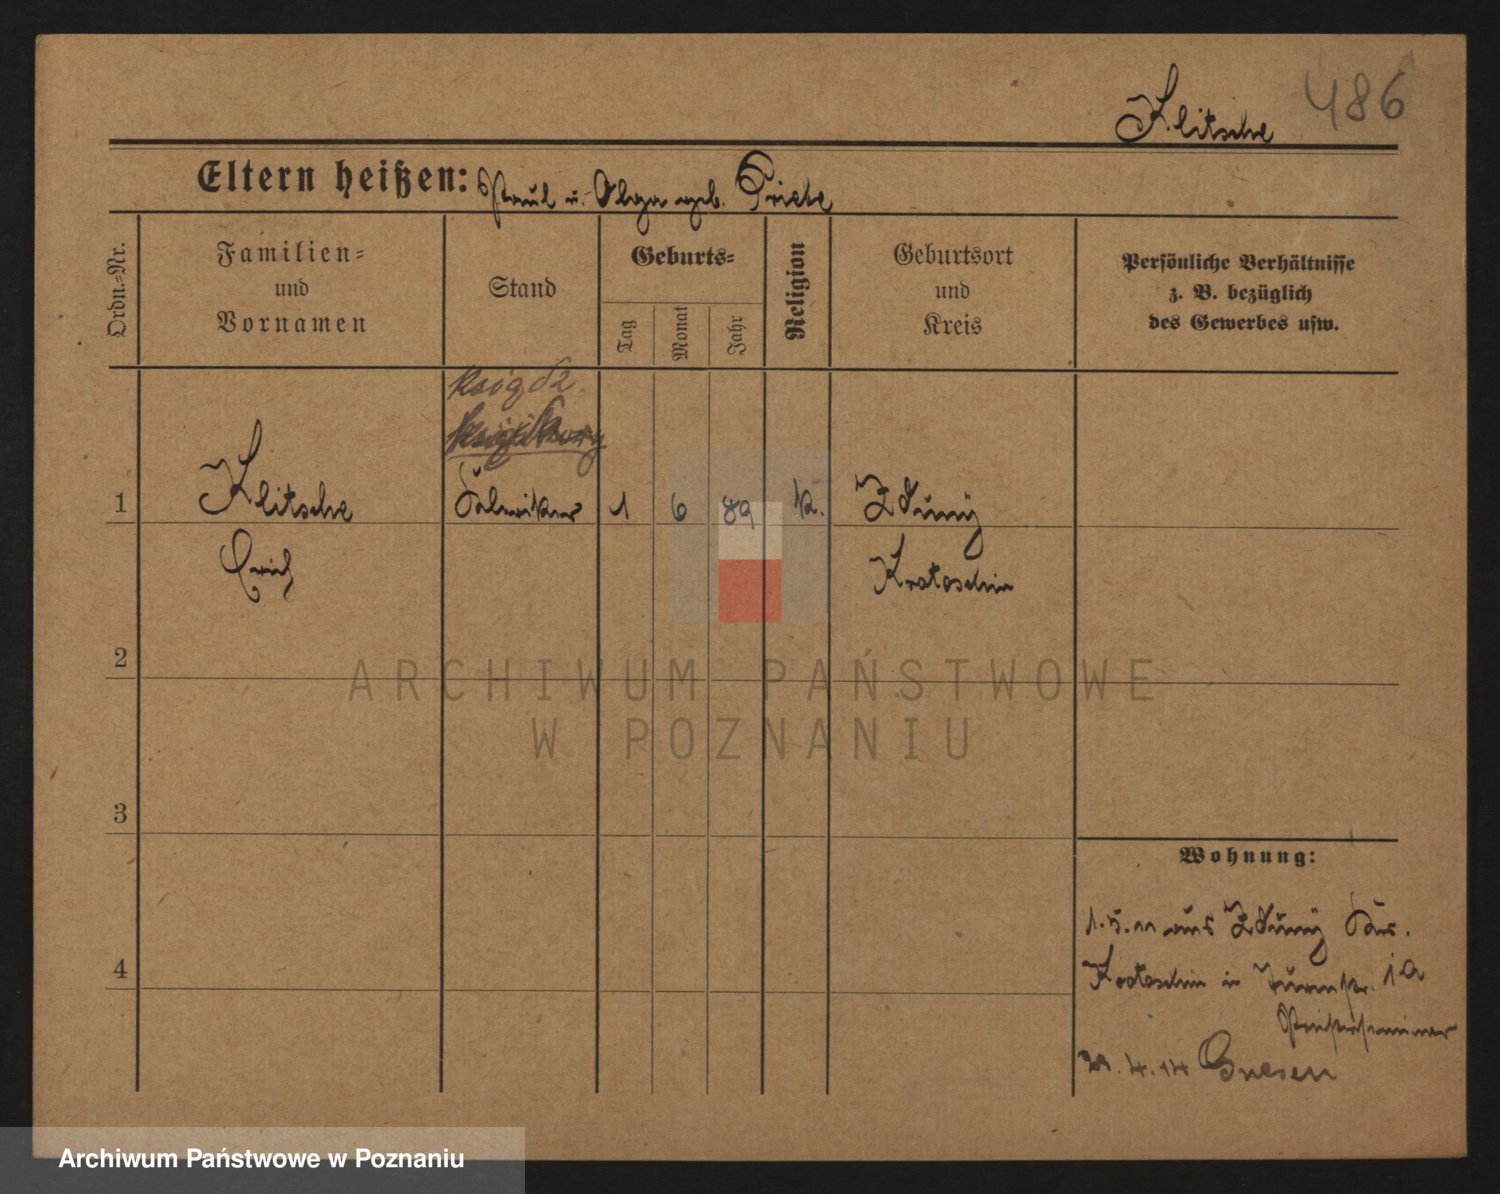 Klitsche 486
Eltern heißen: Paul u. Olga geb. Priebe
Ordn.=Nr.
Familien=
und
Vornamen
Stand
Geburts=
Tag
Monat
Jahr
Religion
Geburtsort
und
Kreis
Persönliche Verhältnisse
z. B. bezüglich
des Gewerbes usw.
ksiądz
1 Klitsche 1 6 89 k. Zduny
Erich Krotoschin
2
3
4
Wohnung:
1.5.11 aus Zduny
Krotoschin in Turmstr. 1a
Priesterseminar
4.14 Gnesen
ARCHIWUM PAŃSTWOWE
W POZNANIU
Archiwum Państwowe w Poznaniu